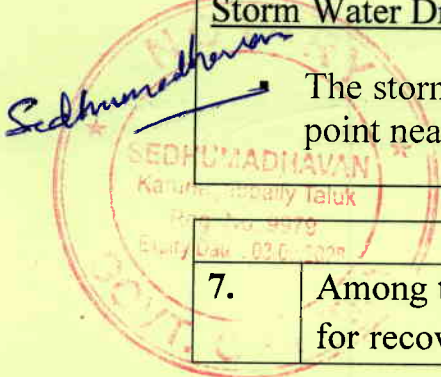 Storm Water Dr
Sedhumadhavan
The storm
point nea
SEDHUMADHAVAN
Taluk
Reg. No. 9979
7. Among t
for recov